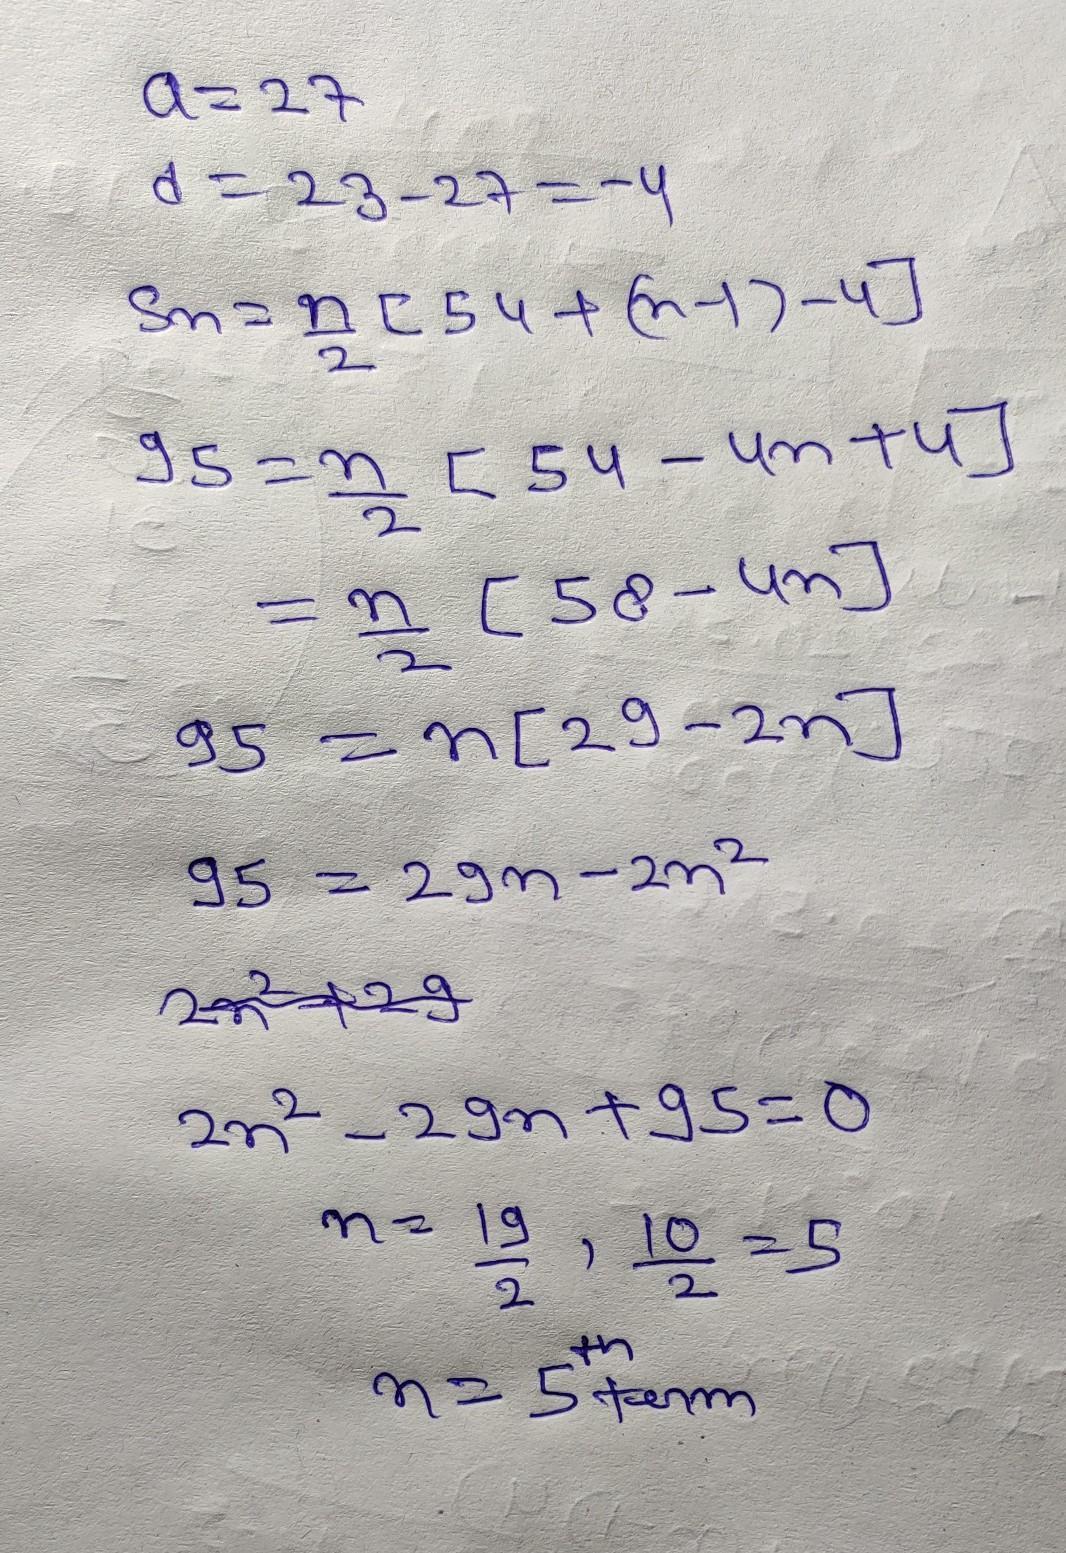 a = 27
d = 23 - 27 = -4
Sn = n/2 [54 + (n-1) -4]
95 = n/2 [54 - 4n + 4]
= n/2 [58 - 4n]
95 = n[29 - 2n]
95 = 29n - 2n²
2n² + 29
2n² - 29n + 95 = 0
n = 19/2 , 10/2 = 5
n = 5th term